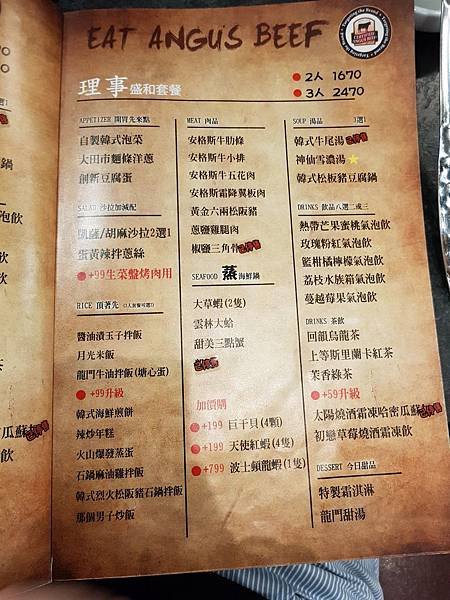 EAT ANGUS BEEF
CERTIFIED
ANGUS BEEF
理事盛和套餐
2人 1670
3人 2470
APPETIZER 開胃先來點
自製韓式泡菜
大田市麵條洋蔥
創新豆腐蛋
SALAD 沙拉加減配
凱薩/胡麻沙拉2選1
蛋黃辣拌蔥絲
+99生菜盤烤肉用
RICE 頂著先
醬油漬玉子拌飯
月光米飯
龍門牛油拌飯(溏心蛋)
+99升級
韓式海鮮煎餅
辣炒年糕
火山爆發蒸蛋
石鍋麻油雞拌飯
韓式烈火松阪豬石鍋拌飯
那個男子炒飯
MEAT 肉品
安格斯牛肋條
安格斯牛小排
安格斯牛五花肉
安格斯霜降翼板肉
黃金六兩松阪豬
蔥鹽雞腿肉
椒鹽三角骨
SEAFOOD 蒸海鮮鍋
大草蝦(2隻)
雲林大蛤
甜美三點蟹
加價購
+199 巨干貝(4顆)
+199 天使紅蝦(4隻)
+799 波士頓龍蝦(1隻)
SOUP 湯品 3選1
韓式牛尾湯
神仙雪濃湯
韓式松板豬豆腐鍋
DRINKS 飲品八選二或三
熱帶芒果蜜桃氣泡飲
玫瑰粉紅氣泡飲
藍柑橘檸檬氣泡飲
荔枝水族箱氣泡飲
蔓越莓果氣泡飲
DRINKS 茶飲
回韻烏龍茶
上等斯里蘭卡紅茶
茉香綠茶
+59升級
太陽燒酒霜凍哈密瓜蘇
初戀草莓燒酒霜凍飲
DESSERT 今日甜品
特製霜淇淋
龍門甜湯